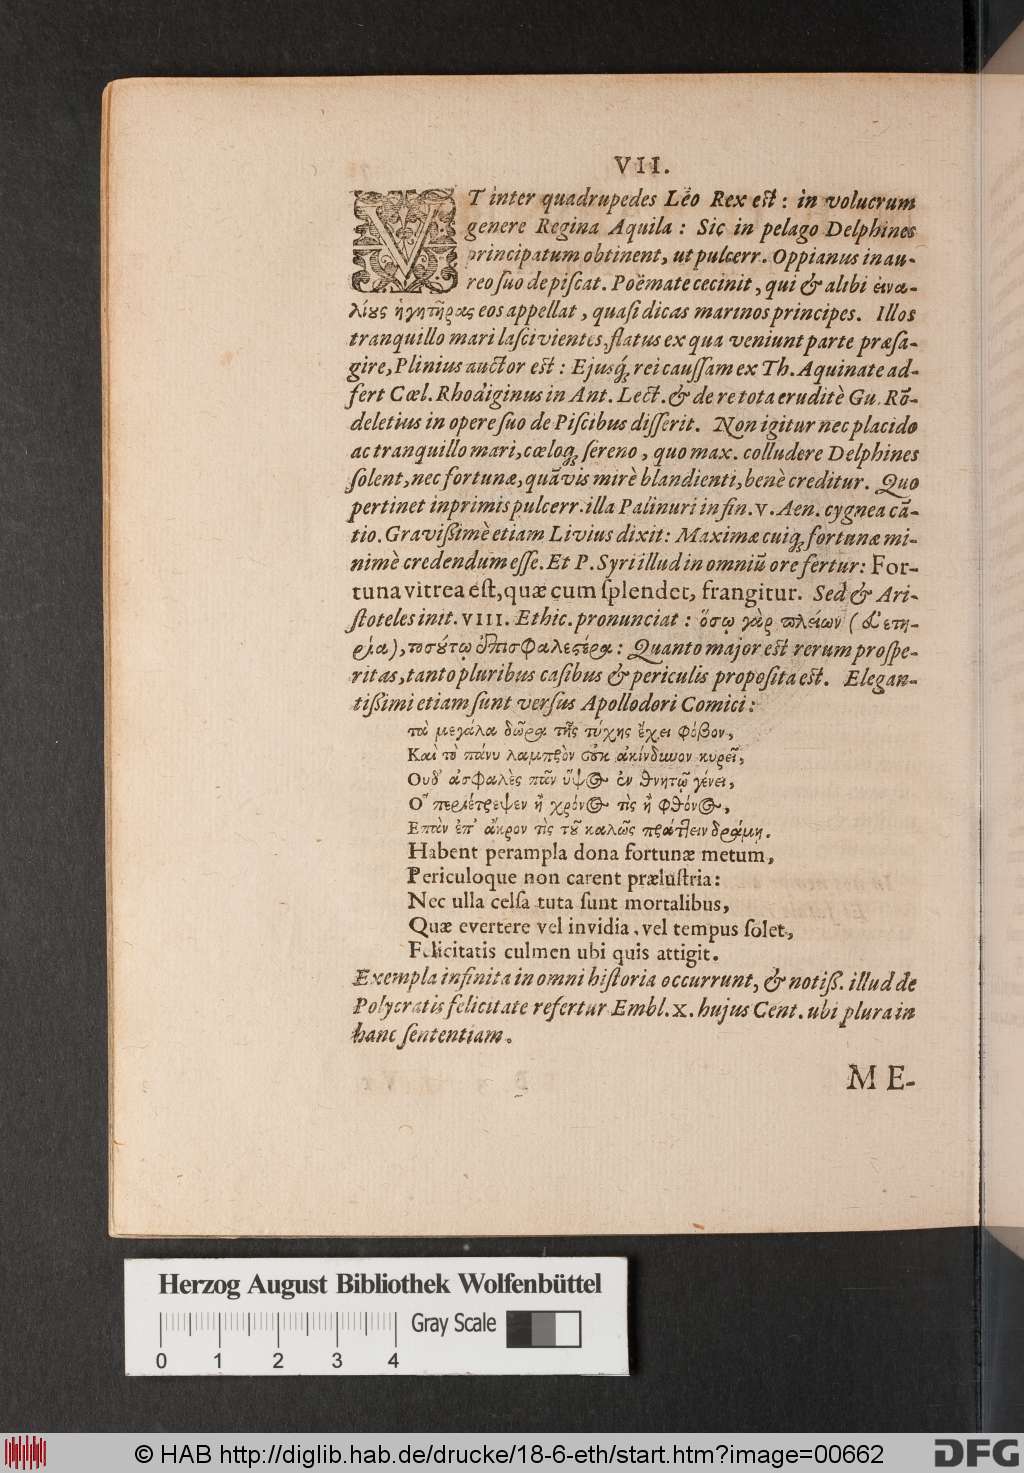 VII.
VT inter quadrupedes Leo Rex est: in volucrum
genere Regina Aquila: Sic in pelago Delphines
principatum obtinent, ut pulcerr. Oppianus in au-
reo suo de piscat. Poëmate cecinit, qui & alibi εἰνα-
λίους ἡγητῆρας eos appellat, quasi dicas marinos principes. Illos
tranquillo mari lascivientes, flatus ex qua veniunt parte præsa-
gire, Plinius auctor est: Ejusq́; rei caussam ex Th. Aquinate ad-
fert Cœl. Rhodiginus in Ant. Lect. & de re tota eruditè Gu. Rō-
deletius in opere suo de Piscibus disserit. Non igitur nec placido
ac tranquillo mari, cœloq; sereno, quo max. colludere Delphines
solent, nec fortunæ, quāvis mirè blandienti, benè creditur. Quo
pertinet inprimis pulcerr. illa Palinuri in fin. V. Aen. cygnea cā-
tio. Gravißimè etiam Livius dixit: Maximæ cuiq; fortunæ mi-
nimè credendum esse. Et P. Syri illud in omniū ore fertur: For-
tuna vitrea est, quæ cum splendet, frangitur. Sed & Ari-
stoteles init. VIII. Ethic. pronunciat: ὅσῳ γὰρ πλείων (ἡ ἐυετη-
ρία), τοσούτῳ ἐπισφαλεστέρα: Quanto major est rerum prospe-
ritas, tanto pluribus casibus & periculis proposita est. Elegan-
tißimi etiam sunt versus Apollodori Comici:
τὰ μεγάλα δῶρα τῆς τύχης ἔχει φόβον,
Καὶ τὸ πάνυ λαμπρὸν οὐκ ἀκίνδυνον κυρεῖ,
Ουδ' ἀσφαλὲς πᾶν ὕψος ἐν θνητῷ γένει,
Ὃ περιέτρεψεν ἢ χρόνος τὶς ἢ φθόνος,
Επὰν ἐπ' ἄκρον τὶς τοῦ καλῶς πράττειν δράμῃ.
Habent perampla dona fortunæ metum,
Periculoque non carent prælustria:
Nec ulla celsa tuta sunt mortalibus,
Quæ evertere vel invidia, vel tempus solet,
Felicitatis culmen ubi quis attigit.
Exempla infinita in omni historia occurrunt, & notiß. illud de
Polycratis felicitate refertur Embl. X. hujus Cent. ubi plura in
hanc sententiam.
ME-
Herzog August Bibliothek Wolfenbüttel
Gray Scale
0 1 2 3 4
© HAB http://diglib.hab.de/drucke/18-6-eth/start.htm?image=00662
DFG